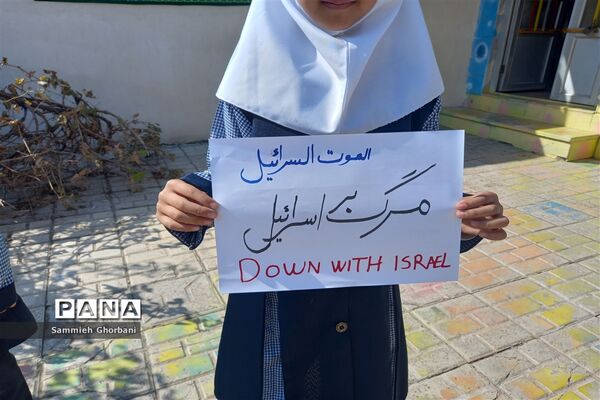 الموت السرائیل
مرگ بر اسرائیل
DOWN WITH ISRAEL
PANA
Sammieh Ghorbani